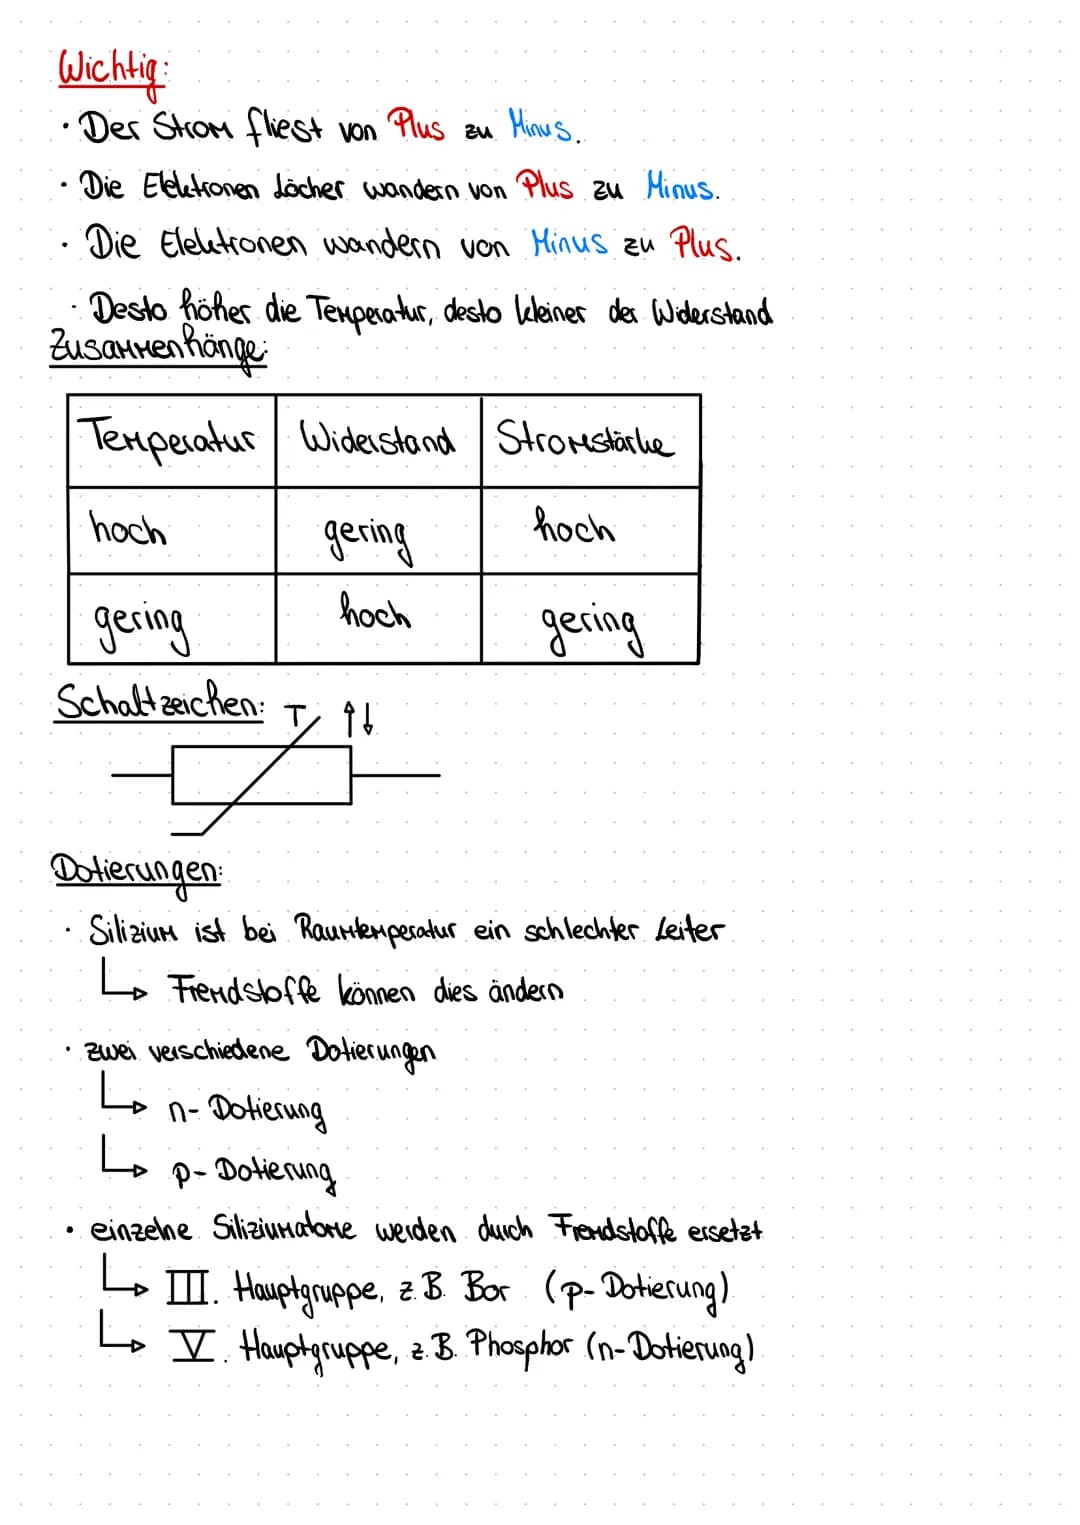 Wichtig:
· Der Strom fliest von Plus zu Minus.
· Die Elektronen Löcher wandern von Plus zu Minus.
· Die Elektronen wandern von Minus zu Plus.
· Desto höher die Temperatur, desto kleiner der Widerstand
Zusammenhänge:
Temperatur Widerstand Stromstärke
hoch gering hoch
gering hoch gering
Schaltzeichen: T ↑↓
Dotierungen:
· Silizium ist bei Raumtemperatur ein schlechter Leiter
↳ Fremdstoffe können dies ändern
· zwei verschiedene Dotierungen
↳ n-Dotierung
↳ p-Dotierung
· einzelne Siliziumatome werden durch Fremdstoffe ersetzt
↳ III. Hauptgruppe, z.B. Bor (p-Dotierung)
↳ V. Hauptgruppe, z.B. Phosphor (n-Dotierung)